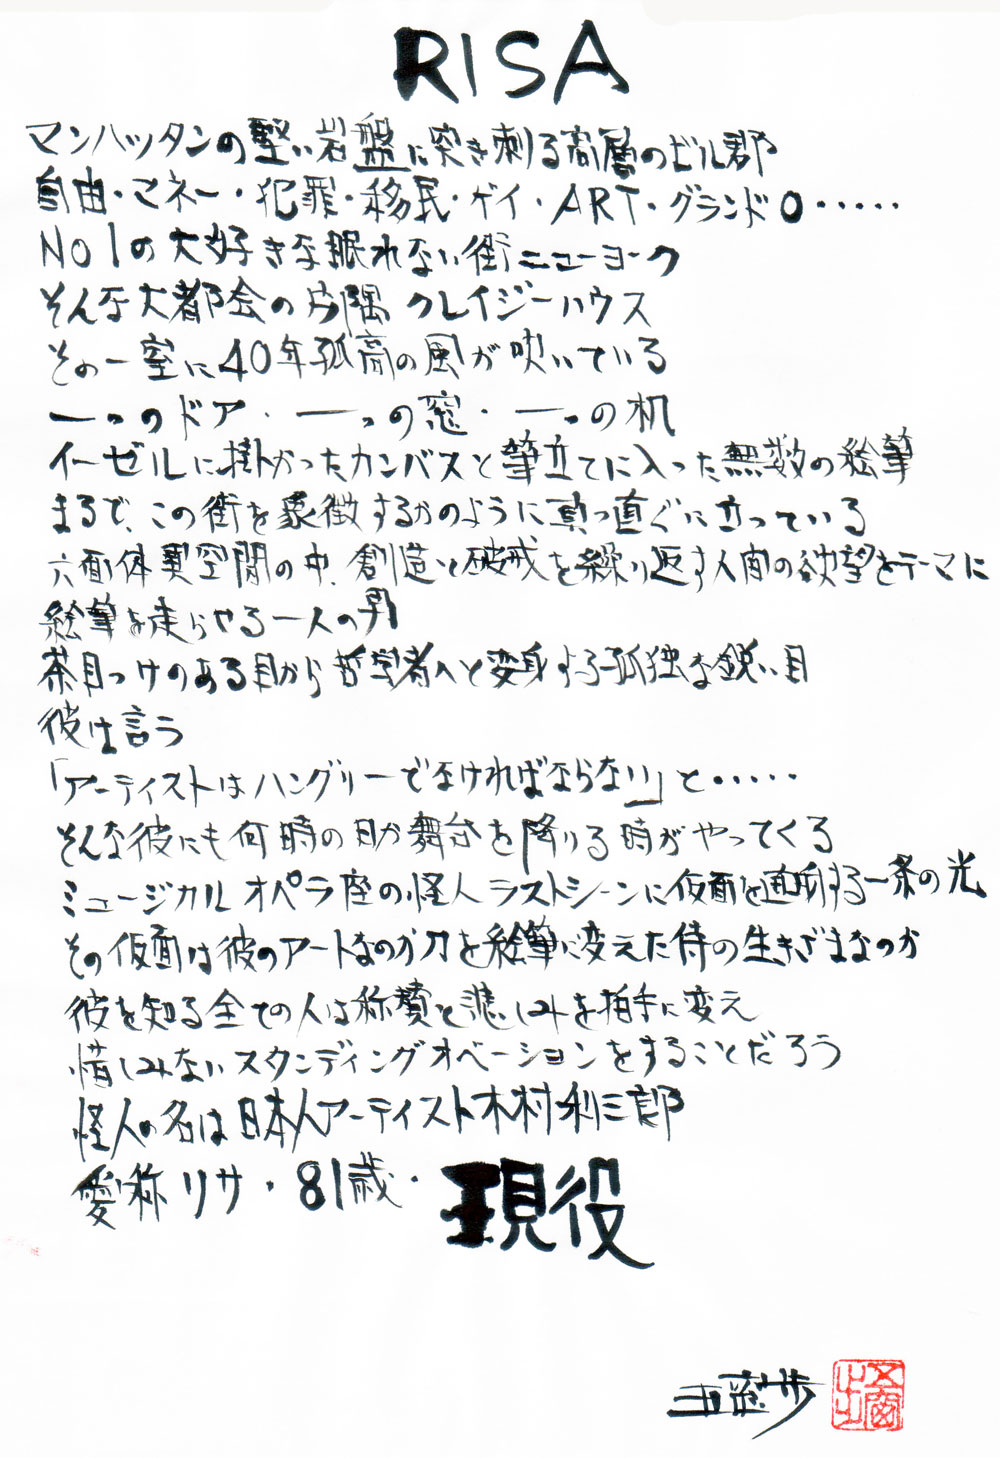 RISA
マンハッタンの堅い岩盤に突き刺る高層のビル郡
自由・マネー・犯罪・移民・ゲイ・ART・グランド0・・・・・
NO1の大好きな眠れない街ニューヨーク
そんな大都会の片隅 クレイジーハウス
その一室に40年孤高の風が吹いている
一つのドア・一つの窓・一つの机
イーゼルに掛かったカンバスと筆立てに入った無数の絵筆
まるで、この街を象徴するかのように真っ直ぐに立っている
六面体異空間の中、創造と破戒を繰り返す人間の欲望をテーマに
絵筆を走らせる一人の男
茶目っけのある目から哲学者へと変身する孤独な鋭い目
彼は言う
「アーティストはハングリーでなければならない」と・・・・・
そんな彼にも何時の日か舞台を降りる時がやってくる
ミュージカル オペラ座の怪人 ラストシーンに仮面を直射する一条の光
その仮面は彼のアートなのか刀を絵筆に変えた侍の生きざまなのか
彼を知る全ての人は称賛と悲しみを拍手に変え
惜しみないスタンディングオベーションをすることだろう
怪人の名は日本人アーティスト木村利三郎
愛称リサ・81歳・現役